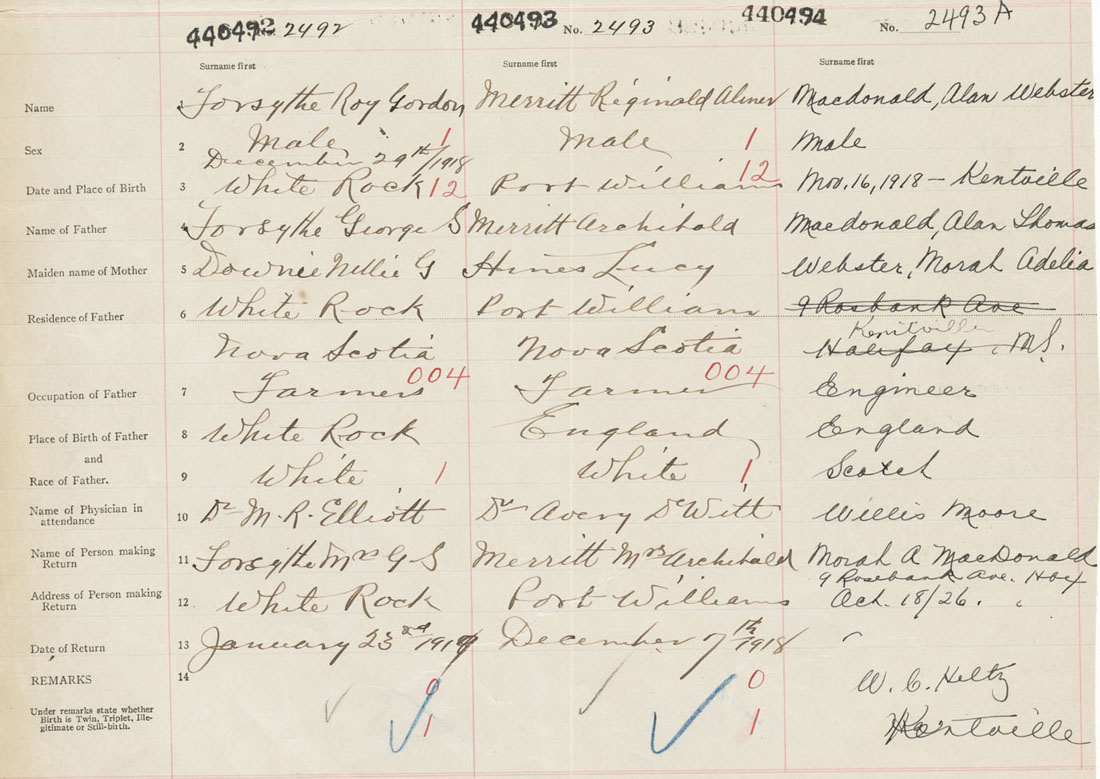 440492 2492 440493 No. 2493 440494 No. 2493 A
Surname first Surname first Surname first
Name 1 Forsythe Roy Gordon Merritt Reginald Abner Macdonald, Alan Webster
Sex 2 Male 1 Male 1 Male
December 29th/1918
Date and Place of Birth 3 White Rock 12 Port Williams 12 Nov. 16, 1918 - Kentville
Name of Father 4 Forsythe George S Merritt Archibald Macdonald, Alan Thomas
Maiden name of Mother 5 Downie Nellie G Hines Lucy Webster, Morah Adelia
Residence of Father 6 White Rock Port William 9 Rosbank Ave
Kentville
Nova Scotia Nova Scotia Halifax, N.S.
004 004
Occupation of Father 7 Farmer Farmer Engineer
Place of Birth of Father 8 White Rock England England
and
Race of Father. 9 White 1 White 1 Scotch
Name of Physician in
attendance 10 Dr M. R. Elliott Dr Avery DeWitt Willis Moore
Name of Person making
Return 11 Forsythe Mrs G S Merritt Mrs Archibald Morah A MacDonald
9 Rosebank Ave. Hfx
Address of Person making
Return 12 White Rock Port Williams Oct. 18/26.
Date of Return 13 January 23rd/1919 December 7th/1918 "
REMARKS 14 0 0 W. C. Heltz
Under remarks state whether
Birth is Twin, Triplet, Ille-
gitimate or Still-birth. 1 1 Kentville